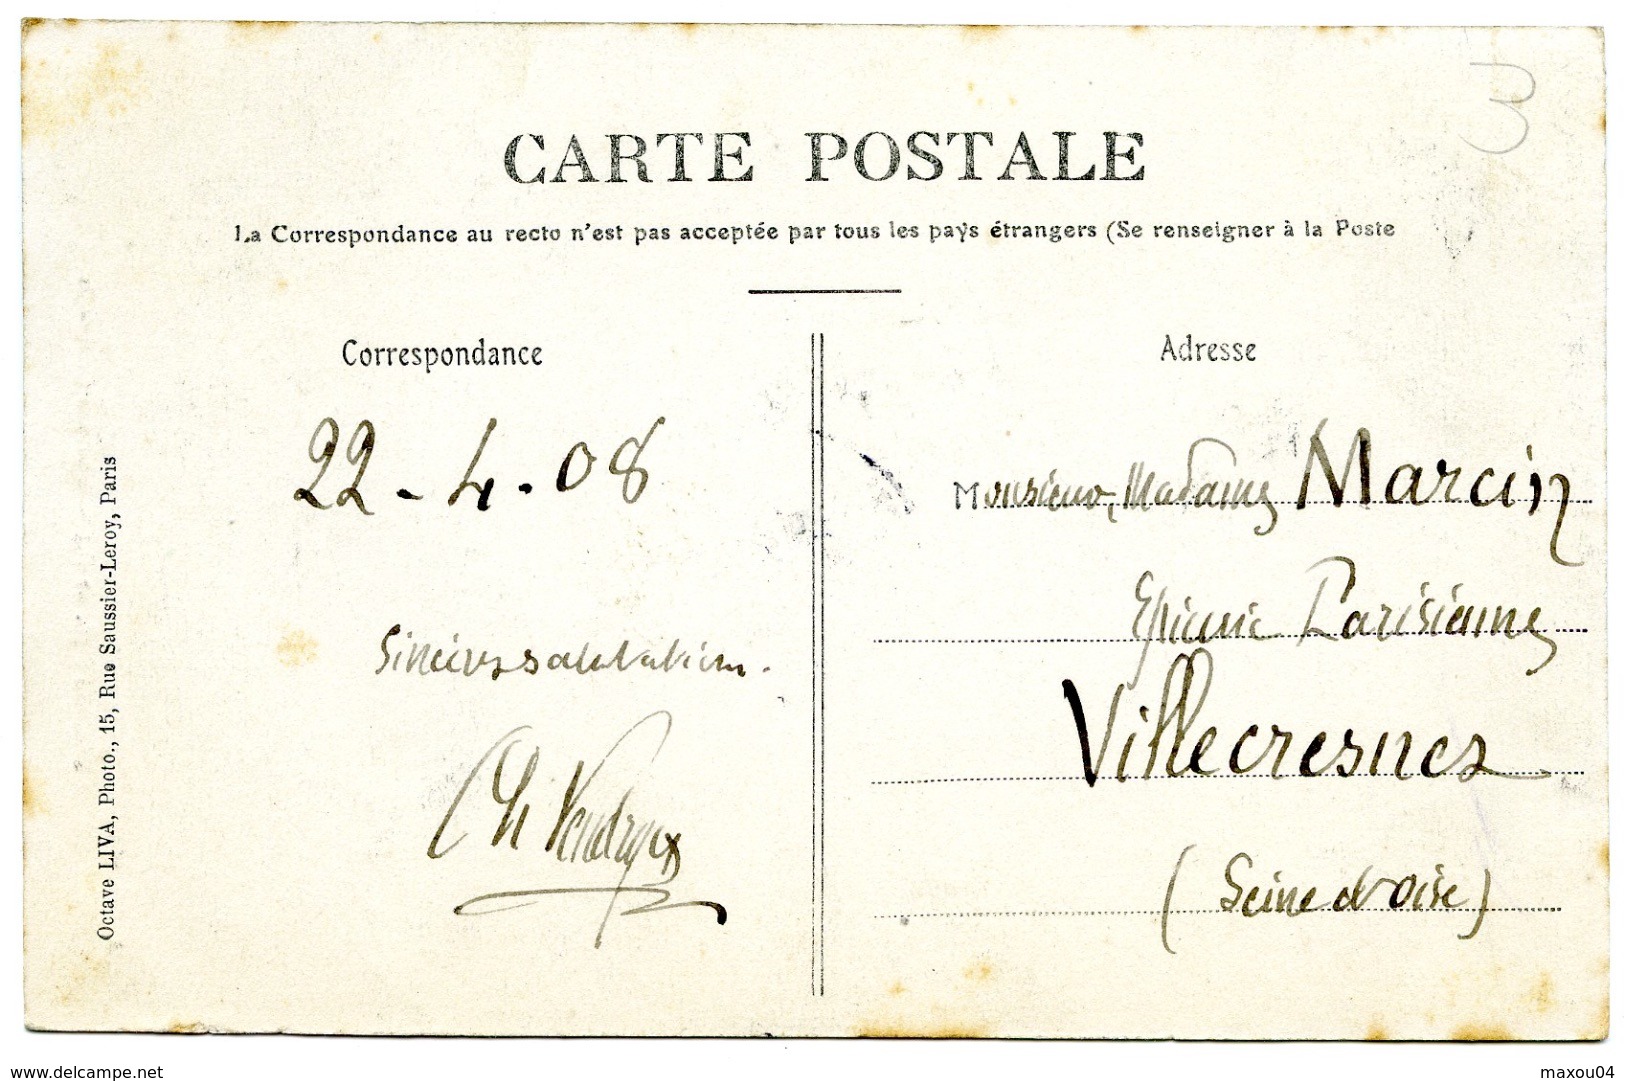 CARTE POSTALE
La Correspondance au recto n'est pas acceptée par tous les pays étrangers (Se renseigner à la Poste
Correspondance
22-4.08
Sincères salutations.
Ch
Octave LIVA, Photo., 15, Rue Saussier-Leroy, Paris
Adresse
Monsieur, Madame Marcin
Epicerie Parisienne
Villecresnes
(Seine et Oise)
3
delcampe.net
maxou04